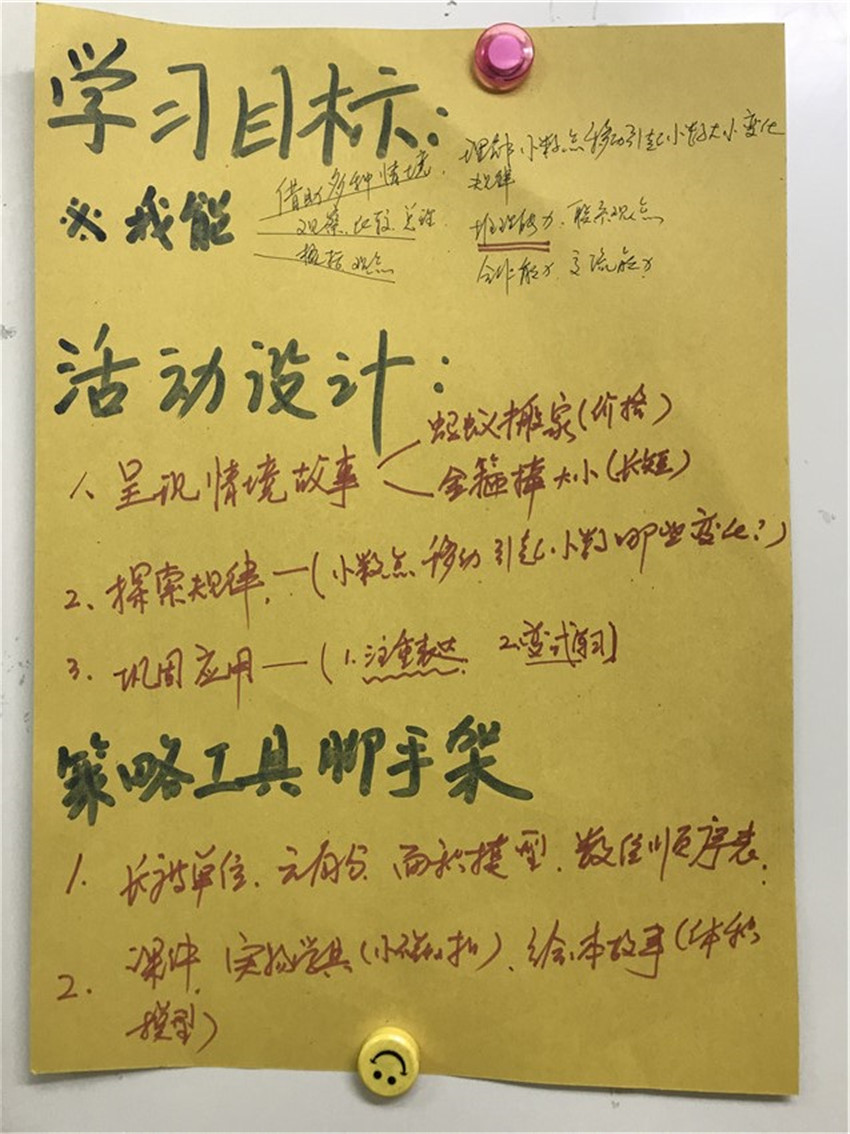 学习目标：
※我能
借助多种情境，
观察、比较、总结
概括观点
理解小数点移动引起小数大小变化
规律
推理能力、联系观点
合作能力 交流能力
活动设计：
1、呈现情境故事
蚂蚁搬家(价格)
金箍棒大小(长短)
2、探索规律，—(小数点移动引起小数哪些变化？)
3、巩固应用—(1.注重表达. 2.变式练习]
策略工具脚手架
1. 长度单位、元角分、面积模型、数位顺序表.
2. 课件、实物学具(小磁扣)、绘本故事(体积
模型)